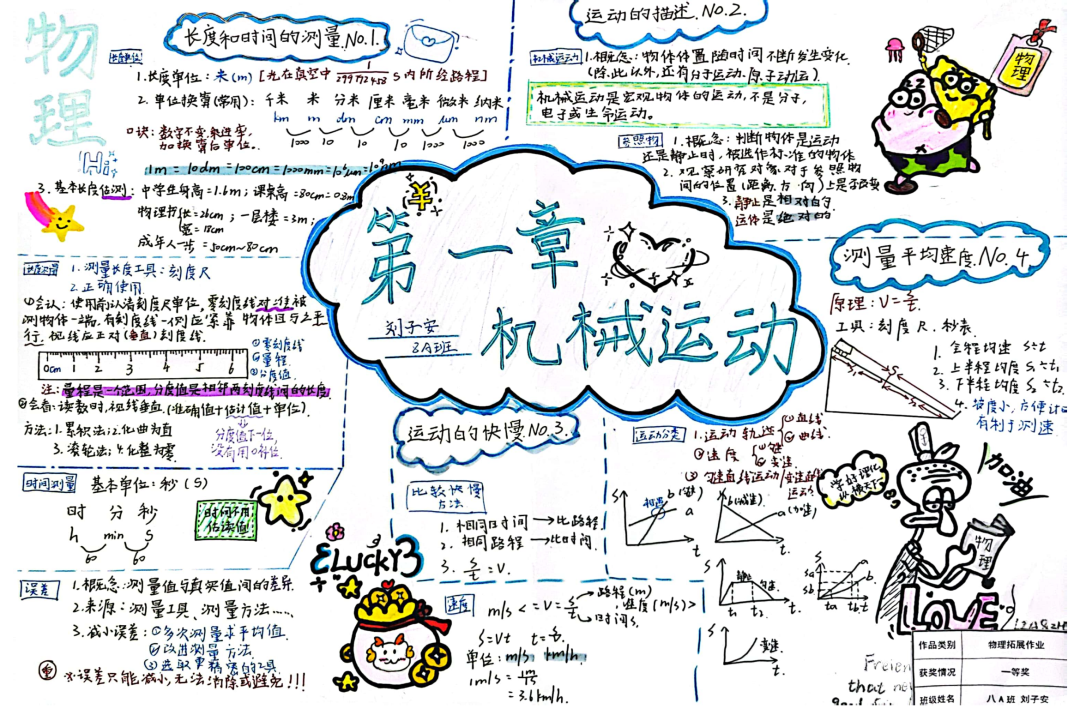 物理
长度和时间的测量No.1.
长度单位
1.长度单位：米(m) [光在真空中 1/299792458 s内所经路程]
2.单位换算(常用)：千米 米 分米 厘米 毫米 微米 纳米
km m dm cm mm μm nm
1000 10 10 10 1000 1000
口诀：数字不变乘进率，
加换算后单位。
Hi
3.基本长度估测：中学生身高=1.6m；课桌高=80cm=0.8m
物理书长=26cm；一层楼=3m；
宽=18cm
成年人一步=50cm~80cm
1.测量长度工具：刻度尺
2.正确使用
①会认：使用前认清刻度尺单位，零刻度线对准被
测物体一端，有刻度线一侧应紧靠物体且与之平
行，视线应正对(垂直)刻度线.
0cm 1 2 3 4 5 6
①零刻度线
②量程
③分度值
注：量程是一个范围，分度值是相邻两刻度线间的长度
②会看：读数时，视线垂直.(准确值+估计值+单位).
分度值下一位，
没有用0补位.
方法：1.累积法；2.化曲为直
3.滚轮法；4.化整为零
时间测量 基本单位：秒(S)
时 分 秒
h min s
60 60
时间不用
估读值
误差
1.概念：测量值与真实值间的差异
2.来源：测量工具、测量方法……
3.减小误差：①多次测量求平均值.
②改进测量方法.
③选取更精密的工具.
※误差只能减小,无法消除或避免!!!
第一章
机械运动
刘子安
8A班
运动的描述.No.2.
机械运动 1.概念：物体位置随时间不断发生变化
(除此以外,还有分子运动.原子动运)
机械运动是宏观物体的运动,不是分子,
电子或生命运动.
参照物 1.概念：判断物体是运动
还是静止时,被选作标准的物体
2.观察研究对象对于参照物
间的位置(距离,方向)上是否改变
3.静止是相对的,
运动是绝对的
物理
运动的快慢No.3.
比较快慢
方法
1.相同时间→比路程
2.相同路程→比时间.
3. s/t=V.
LUCKY
速度
m/s <=V=s/t →路程(m) 速度(m/s)>
→时间s.
S=Vt t=s/v
单位：m/s km/h
=3.6km/h.
运动分类
1.运动轨迹 ①直线
②曲线
测量平均速度.No.4
原理：V=s/t
工具：刻度尺.秒表
1.全程均速 S=t
4.坡度小,方便计时
有利于测速
学好理化
加油
物理
LOVE
作品类别 物理拓展作业
获奖情况 一等奖
班级姓名 八A班 刘子安